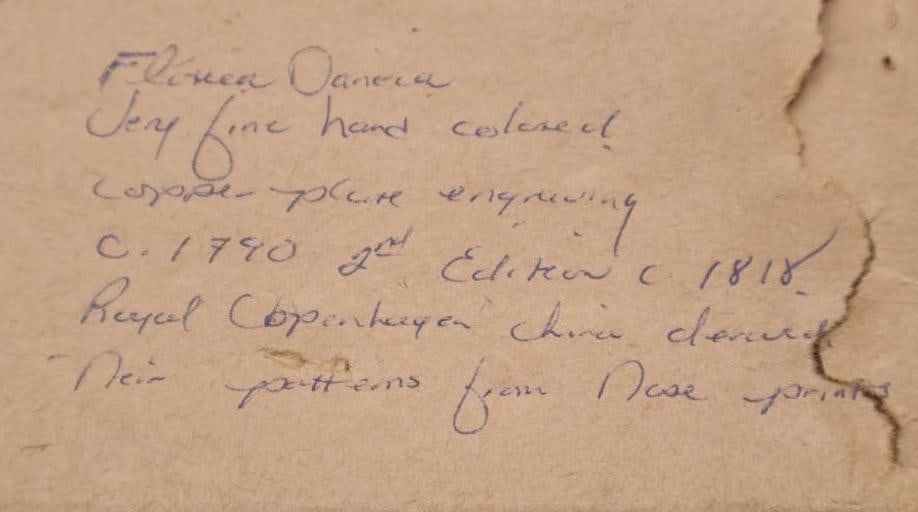 Florica Danica
Very fine hand colored
copper plate engraving
c. 1790 2nd Edition c 1818
Royal Copenhagen china derived
their patterns from those prints